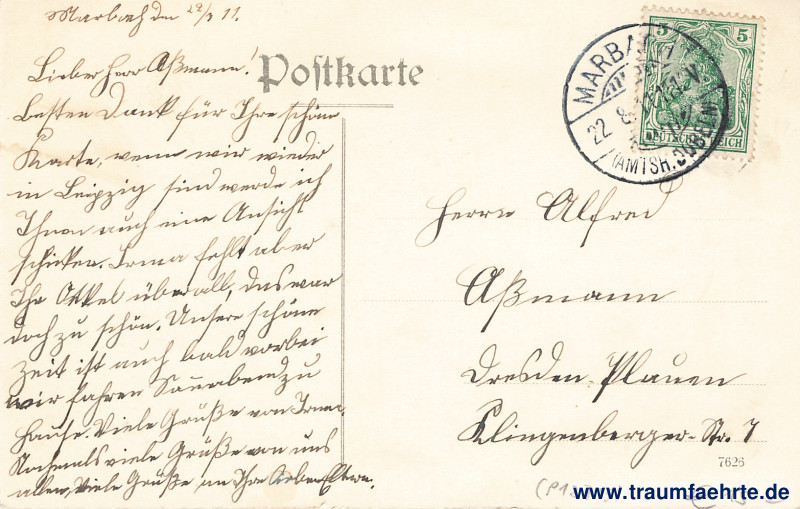 Marbach den 22/8 11.
Lieber Herr Aßmann!
Besten Dank für Ihre schöne
Karte, wenn wir wieder
in Leipzig sind werde ich
Ihnen auch eine Ansicht
schicken. Irma fehlt aber
Ihr Onkel überall, das war
doch zu schön. Unsere schöne
Zeit ist auch bald vorbei
wir fahren Sonnabend zu
Hause. Viele Grüße von Irma.
Nochmals viele Grüße von uns
allen, viele Grüße an Ihre lieben Eltern.
Postkarte
5 5
DEUTSCHES REICH
MARBACH
22 8
(AMTSH. DÖBELN)
Herrn Alfred
Aßmann
Dresden Plauen
Klingenberger-Str. 7
7626
www.traumfaehrte.de